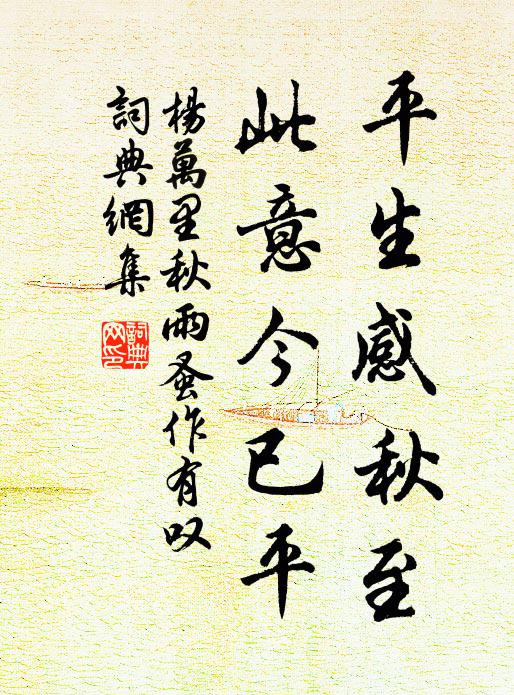 平生感秋至
此意今已平
楊萬里秋雨蚤作有叹
詞典網集
詞典网印